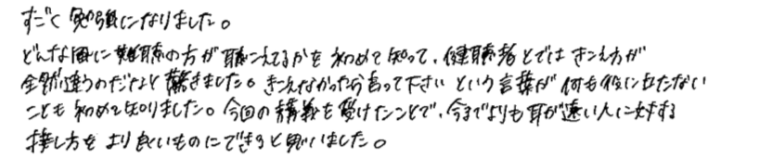 すごく勉強になりました。
どんな風に難聴の方が聴こえてるかを初めて知って、健聴者とではきこえ方が
全然違うのだなと驚きました。きこえなかったら言って下さいという言葉が何も役に立たない
ことも初めて知りました。今回の講義を受けたことで、今までよりも耳が遠い人に対する
接し方をより良いものにできると思いました。